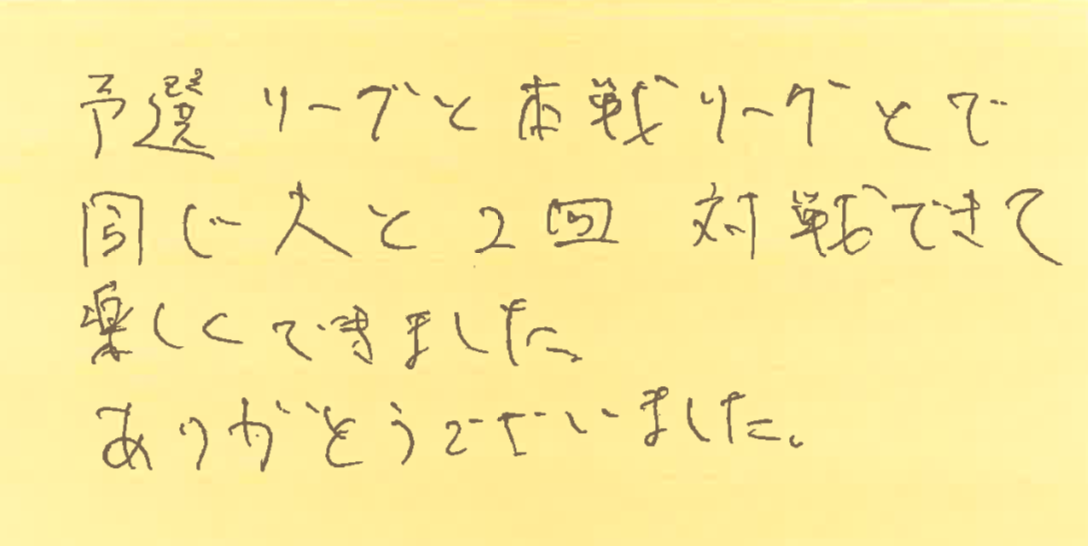 予選リーグと本戦リーグとで
同じ人と2回 対戦できて
楽しくできました。
ありがとうございました。